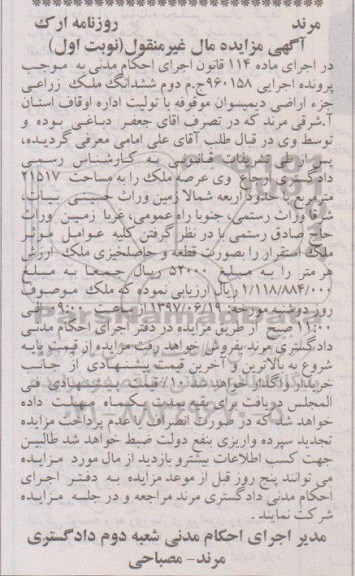 مرند روزنامه ارک
آگهی مزایده مال غیرمنقول(نوبت اول)
در اجرای ماده ۱۱۴ قانون اجرای احکام مدنی به موجب
پرونده اجرایی ۹۶۰۱۵۸ج.م دوم ششدانگ ملک زراعی
جزء اراضی دیمیسوان موقوفه با تولیت اداره اوقاف استان
آ.شرقی مرند که در تصرف آقای جعفر دباغی بوده و
توسط وی در قبال طلب آقای علی امامی معرفی گردیده،
پس از طی تشریفات قانونی به کارشناس رسمی
دادگستری ارجاع وی عرصه ملک را به مساحت ۲۱۵۱۷
مترمربع با حدود اربعه شمالا زمین وراث حسینی بیات،
شرقا وراث رستمی، جنوبا راه عمومی، غربا زمین وراث
حاج صادق رستمی با در نظر گرفتن کلیه عوامل موثر
ملک استقرار را بصورت قطعه و حاصلخیزی ملک ارزش
هر متر را به مبلغ ۵۲۰۰۰ ریال جمعا به مبلغ
۱/۱۱۸/۸۸۴/۰۰۰ ریال ارزیابی نموده که ملک موصوف
روز دوشنبه مورخه ۱۳۹۷/۰۶/۱۹ از ۰۹:۰۰ الی
۱۱:۰۰ صبح از طریق مزایده در دفتر اجرای احکام مدنی
دادگستری مرند بفروش خواهد رفت مزایده از قیمت پایه
شروع به بالاترین و آخرین قیمت پیشنهادی از جانب
خریدار واگذار خواهد شد ۱۰٪ قیمت پیشنهادی فی
المجلس دریافت برای بقیه مدت یکماه مهلت داده
خواهد شد که در صورت انصراف یا عدم پرداخت مزایده
تجدید سپرده واریزی بنفع دولت ضبط خواهد شد طالبین
جهت کسب اطلاعات بیشترو بازدید از مال مورد مزایده
می توانند پنج روز قبل از موعد مزایده به دفتر اجرای
احکام مدنی دادگستری مرند مراجعه و در جلسه مزایده
شرکت نمایند .
مدیر اجرای احکام مدنی شعبه دوم دادگستری
مرند- مصباحی
ParsNamadData
۰۲۱-۸۸۳۴۹۶۷۰-۵